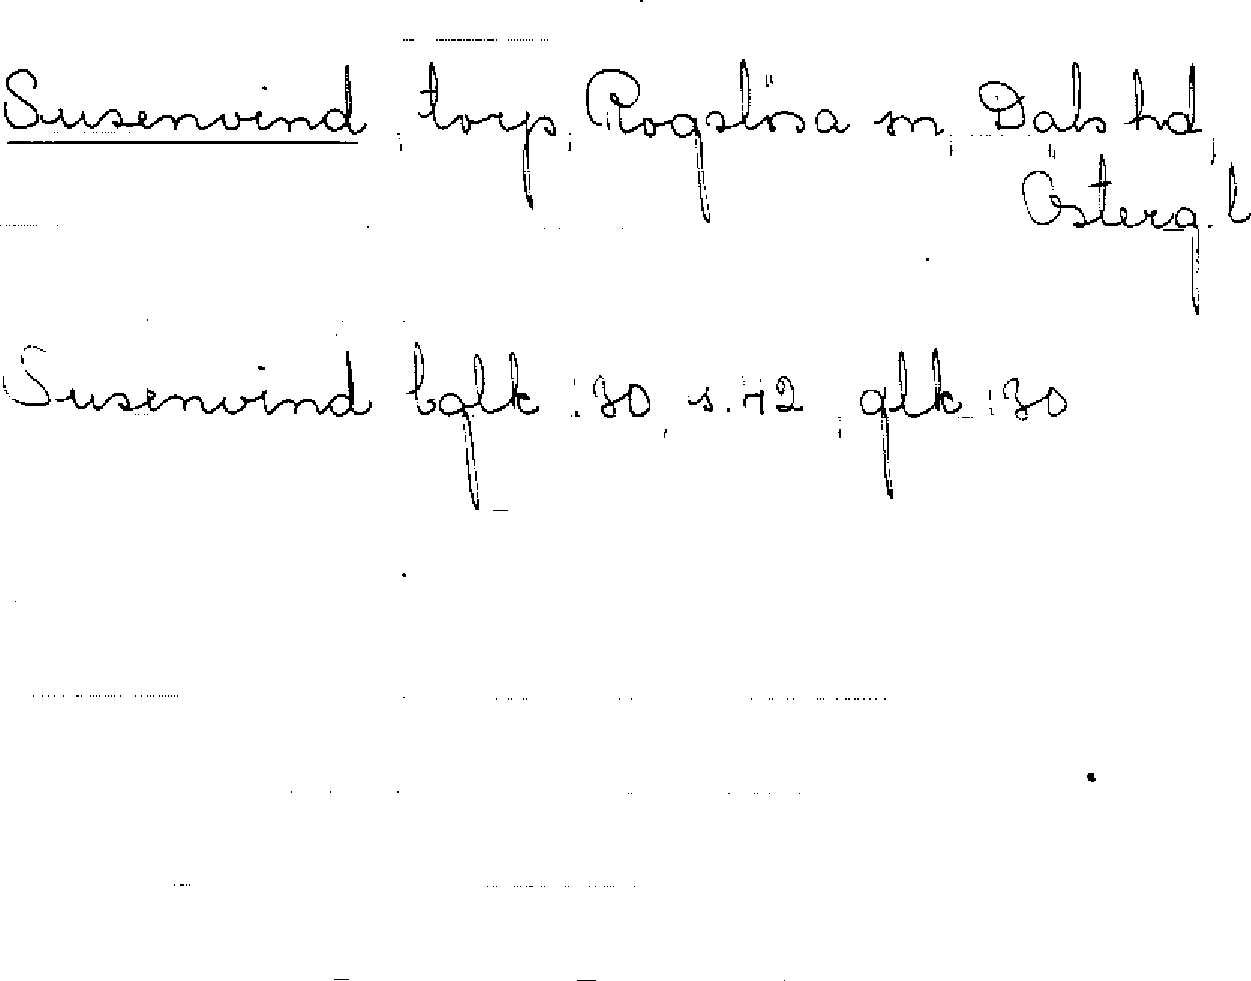 Susenvind, torp, Rogslösa sn, Dals hd,
Österg. l
Susenvind bglk :30, s. 42, glk :30